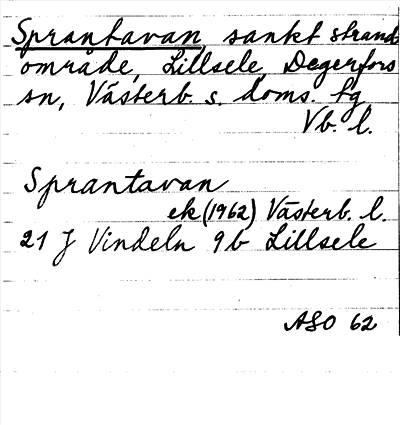 Sprantavan, sankt strand
område, Lillsele, Degerfors
sn, Västerb. s. doms. fg
Vb. l.
Sprantavan
ek (1962) Västerb. l.
21 J Vindeln 9b Lillsele
ASO 62